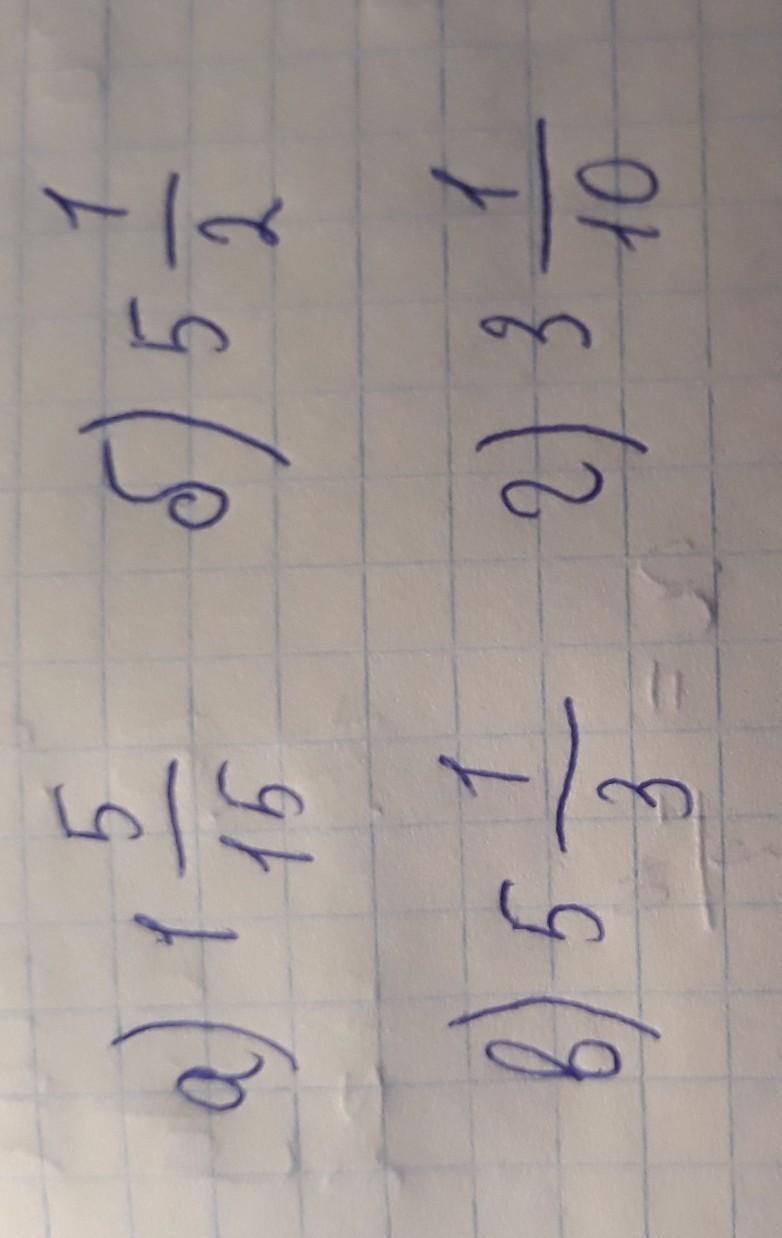 а) 1 5/15 б) 5 1/2
в) 5 1/3 г) 3 1/10